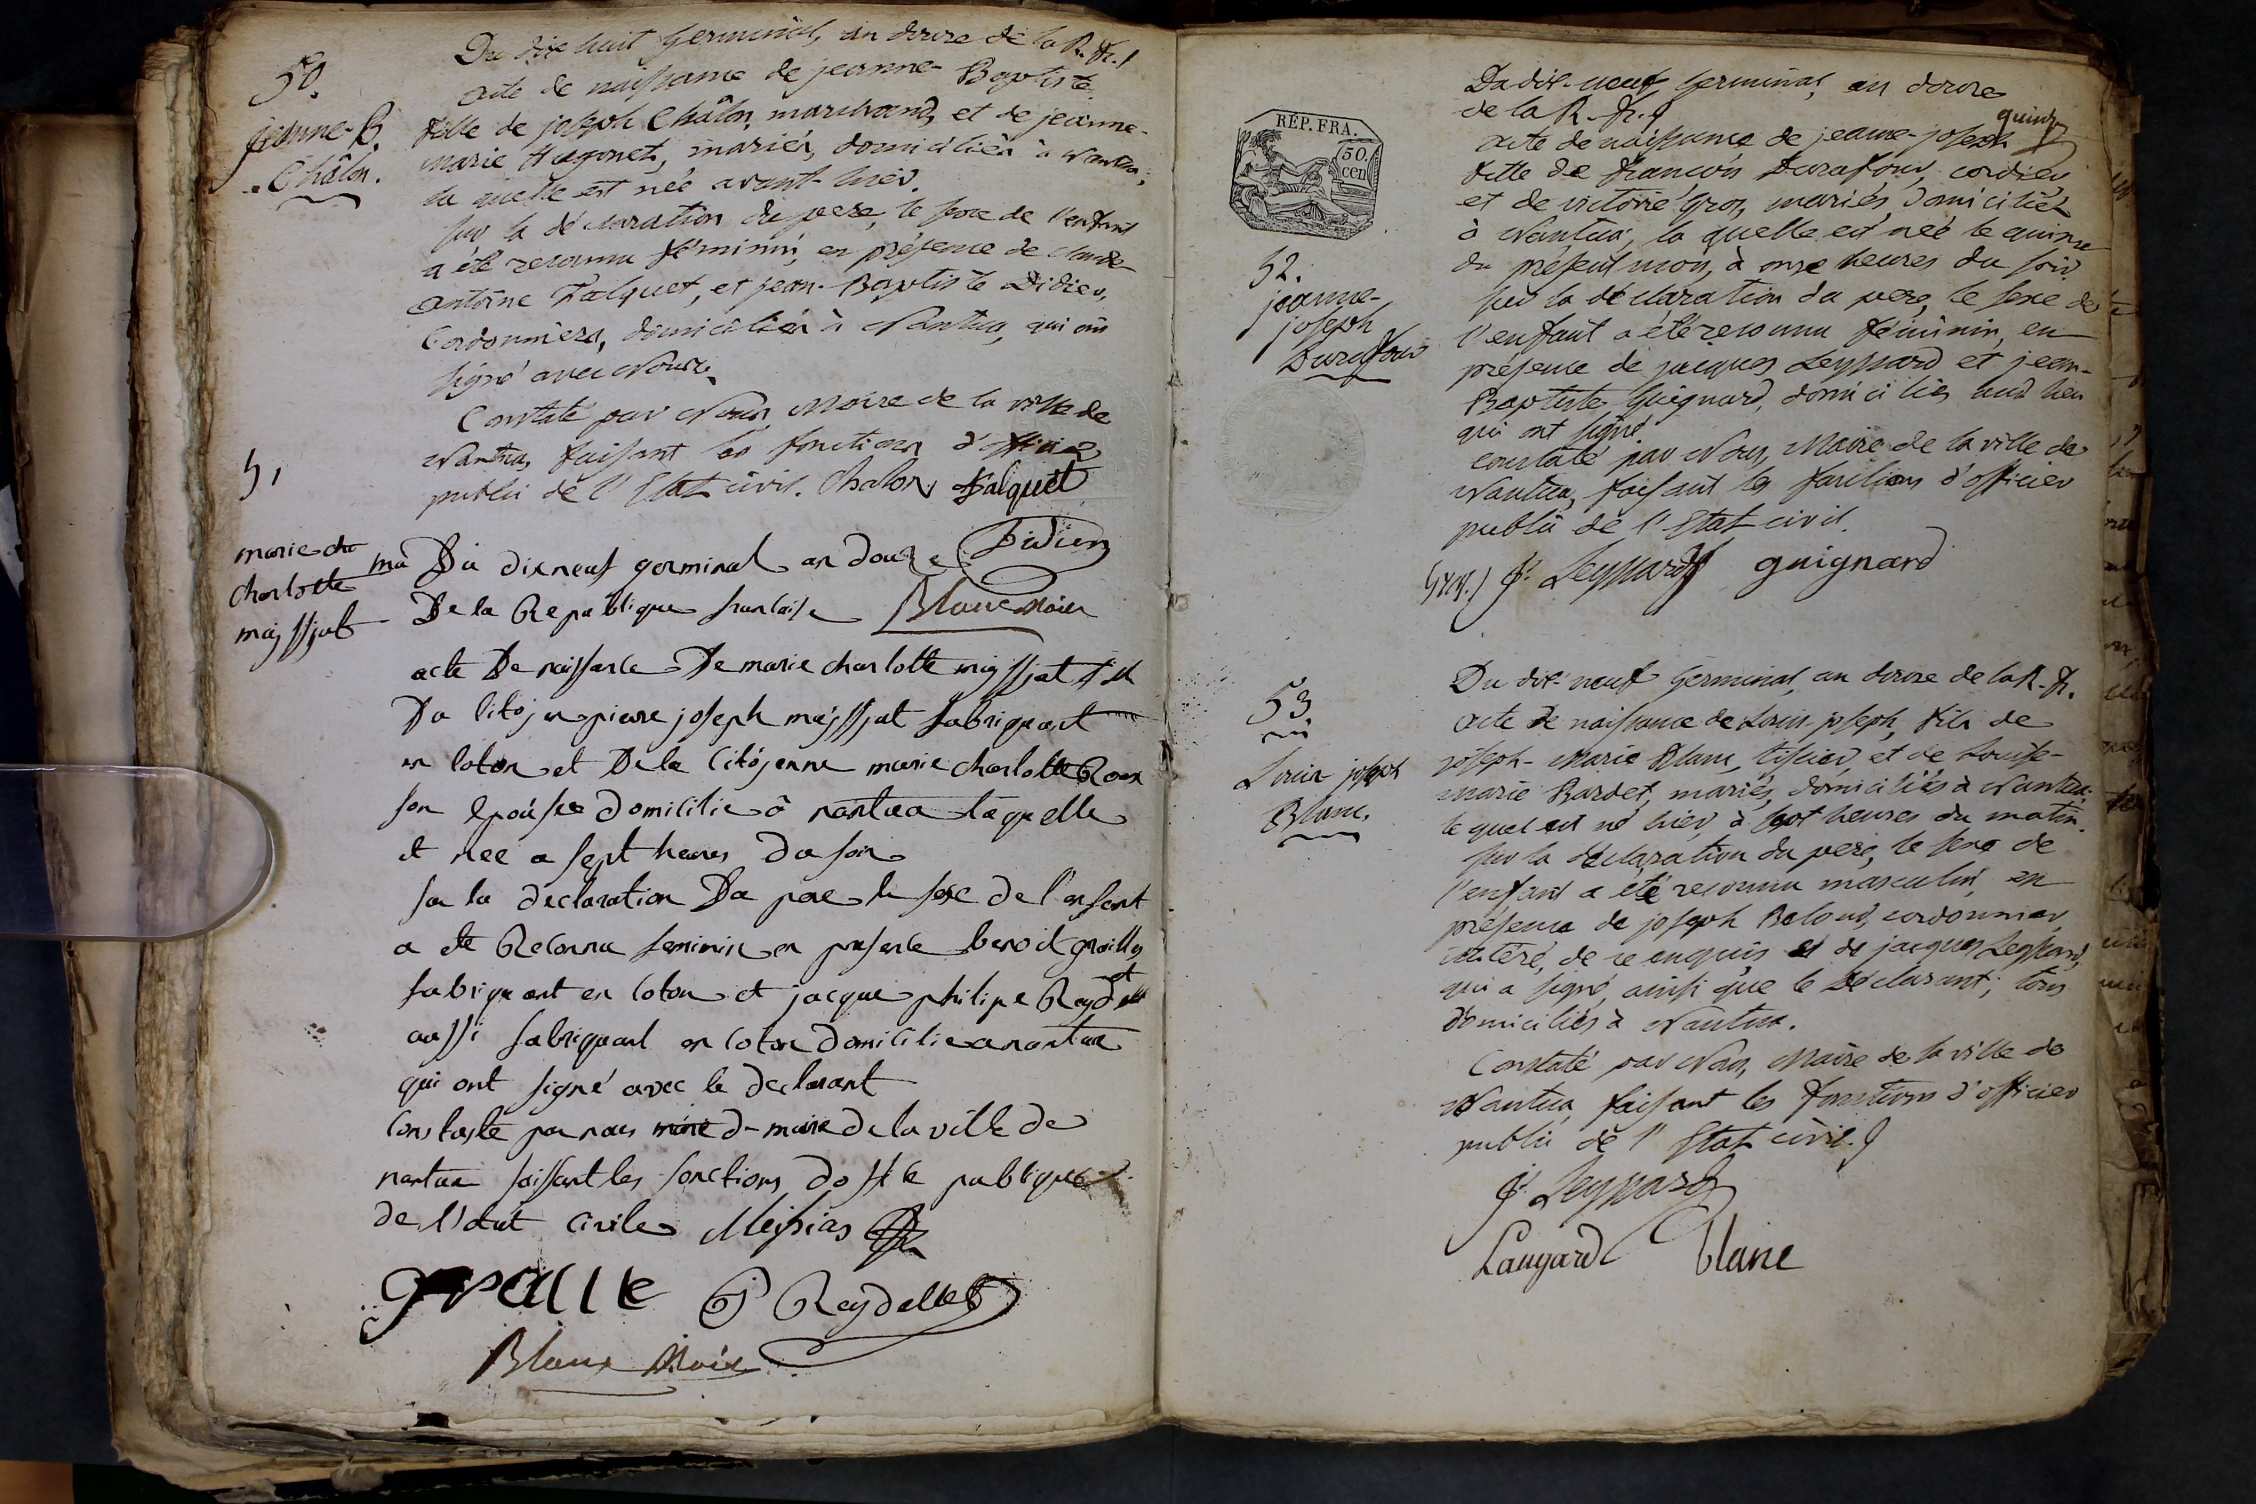 50.
jeanne-B.
Châlon.
Du dix huit germinal, an douze de la R. fr.
acte de naissance de jeanne-Baptiste
fille de joseph Châlon, marchand, et de jeanne-
marie Hugonet, mariés, domiciliés à Nantua;
la quelle est née avant-hier.
sur la déclaration du pere, le sexe de l'enfant
a été reconnu féminin, en présence de claude
antoine Falquet, et jean-Baptiste Didier,
Cordonniers, domiciliés à Nantua, qui ont
signé avec Nous.
Constaté par Nous, Maire de la ville de
Nantua, faisant les fonctions d'officier
public de l'Etat civil. Chalon Falquet
Didier
51
marie
charlotte
maissiat
Du dix neuf germinal an douze
De la Republique francaise Blanc Maire
acte De naissance De marie charlotte maissiat fille
Du citojen pierre joseph maissiat fabriquant
en coton et De la Citojenne marie charlotte
son epouse domicilie a nantua laquelle
et nee a sept heures du soir
sur la declaration Du pere le sexe de l'enfant
a ete Reconnu feminin en presence benoit
fabriquant en coton et jacque philipe Reydellet
aussi fabriquant en coton domicilie a nantua
qui ont signé avec le declarant
Constaste par nous maire d- maire de la ville de
nantua faissant les fonctions publique
de l'etat civile Meissias
gralle P Reydellet
Blanc Maire
RÉP. FRA.
50.
cen
52.
jeanne-
joseph
Durafour
Du dix-neuf germinal, an douze
de la R. fr.
acte de naissance de jeanne-joseph
fille de françois Durafour, cordier
et de victoire gros, mariés domiciliés
à Nantua, la quelle est née le quinze
du présent mois, à onze heures du soir
sur la déclaration du pere, le sexe de
l'enfant a été reconnu féminin, en
présence de jacques Leyssard et jean-
Baptiste Guignard, domiciliés aud lieu
qui ont signé
constaté par Nous, Maire de la ville de
Nantua, faisant les fonctions d'officier
public de l'Etat civil.
Js Leyssard guignard
53.
Louis joseph
Blanc.
Du dix-neuf germinal, an douze de la R. fr.
acte de naissance de Louis-joseph, fils de
joseph-Marie Blanc, tissier, et de Louise-
Marie Bardet, mariés, domiciliés à Nantua.
le quel est né hier à sept heures du matin.
sur la déclaration du pere, le sexe de
l'enfant a été reconnu masculin, en
présence de joseph cordonnier,
de ce enquis et de jacques Leyssard,
qui a signé, ainsi que le déclarant; tous
domiciliés à Nantua.
Constaté par Nous, Maire de la ville de
Nantua, faisant les fonctions d'officier
public de l'Etat civil.
Js Leyssard
Laugard blanc